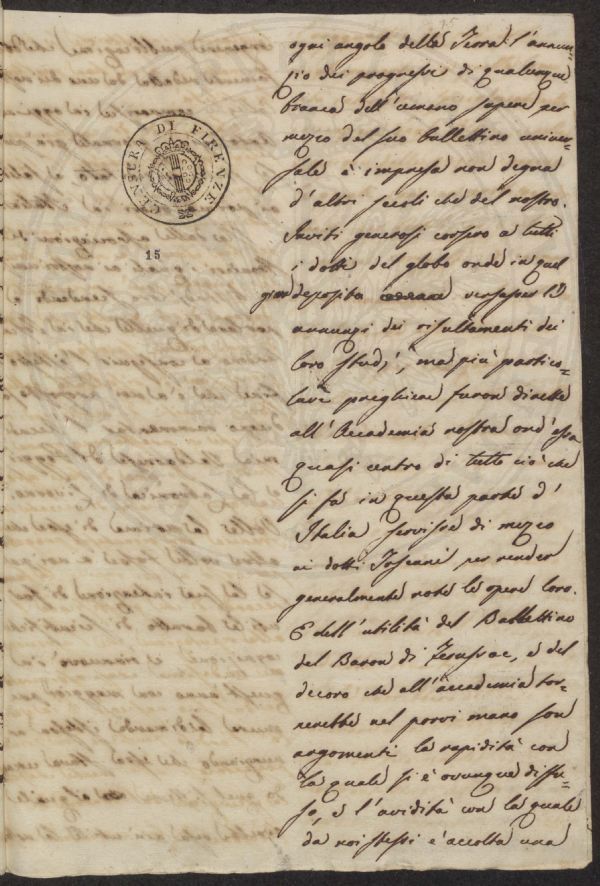 ogni angolo della Terra l'annun-
zio dei progressi di qualunque
branca dell'umano sapere per
mezzo del suo bullettino univer-
sale è impresa non degna
d'altri secoli che del nostro.
Inviti generosi corsero a tutti
i dotti del globo onde in quel
gran deposito versasser li
annunzi dei risultamenti dei
loro studj, ma più partico-
lari preghiere furon dirette
all'Accademia nostra ond'essa
quasi centro di tutto ciò che
si fa in questa parte d'
Italia servisse di mezzo
ai dotti Toscani per render
generalmente note le opere loro.
E dell'utilità del Bullettino
del Baron di Ferussac, e del
decoro che all'accademia tor-
nerebbe nel porvi mano son
argomenti la rapidità con
la quale si è ovunque diffu-
so, e l'avidità con la quale
da noi stessi è accolta una
CENSURA DI FIRENZE
15